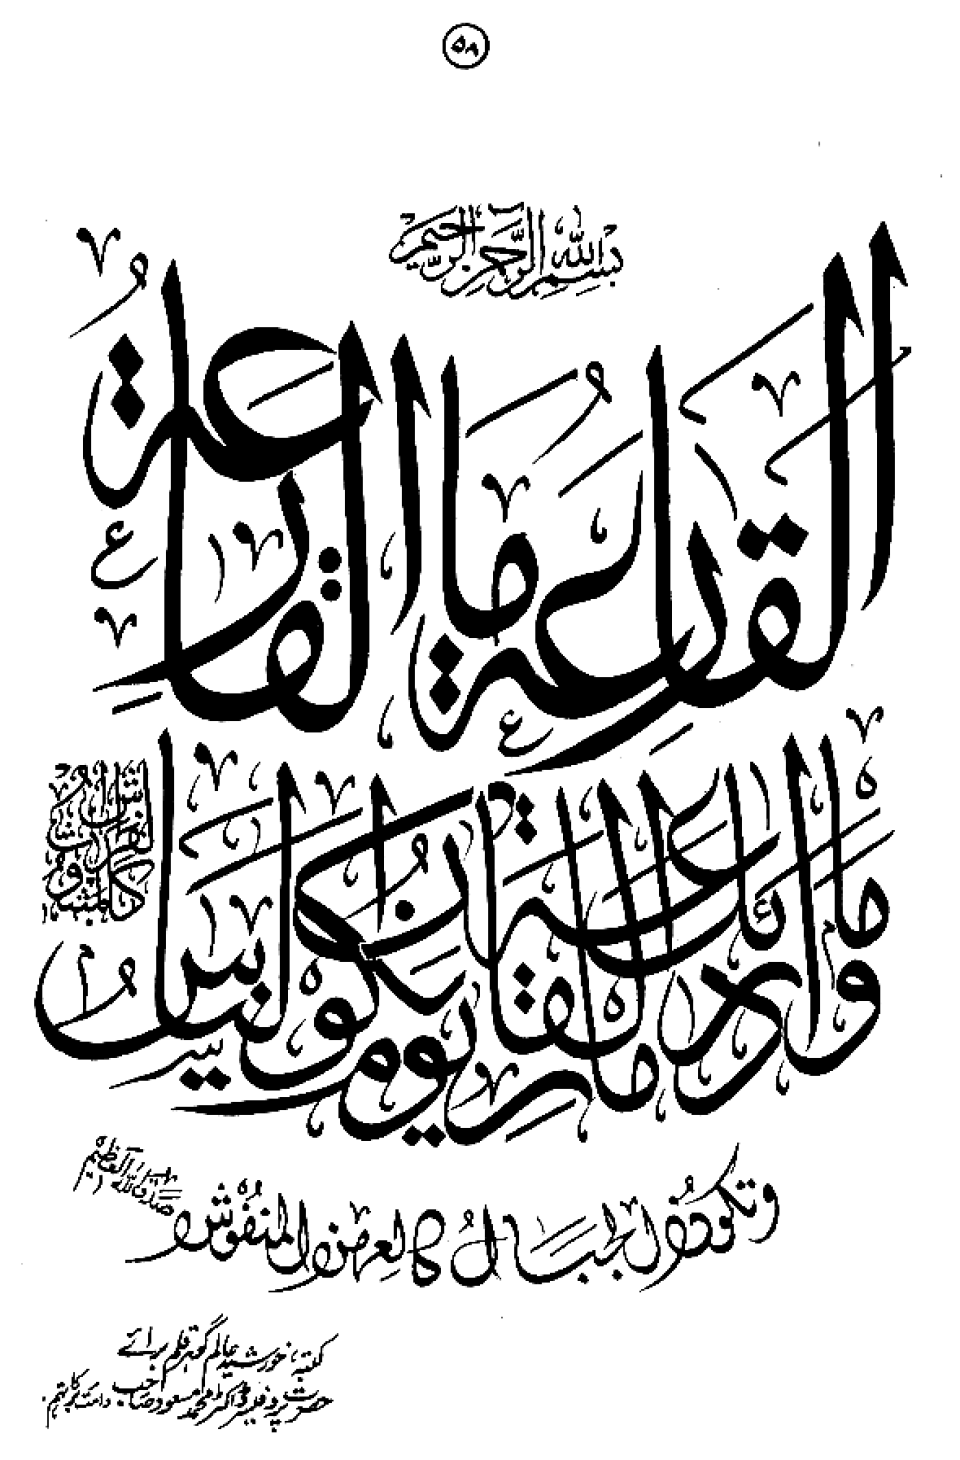 ۵۸
بِسْمِ اللهِ الرَّحْمٰنِ الرَّحِيْمِ
اَلْقَارِعَةُ مَا الْقَارِعَةُ
وَمَا اَدْرٰىكَ مَا الْقَارِعَةُ يَوْمَ يَكُوْنُ النَّاسُ
كَالْفَرَاشِ الْمَبْثُوْثِ
وَتَكُوْنُ الْجِبَالُ كَالْعِهْنِ الْمَنْفُوْشِ
صدق الله العظیم
کتبہ، خورشید عالم گوہر قلم برائے
حضرت پروفیسر ڈاکٹر محمد مسعود صاحب دامت برکاتہم